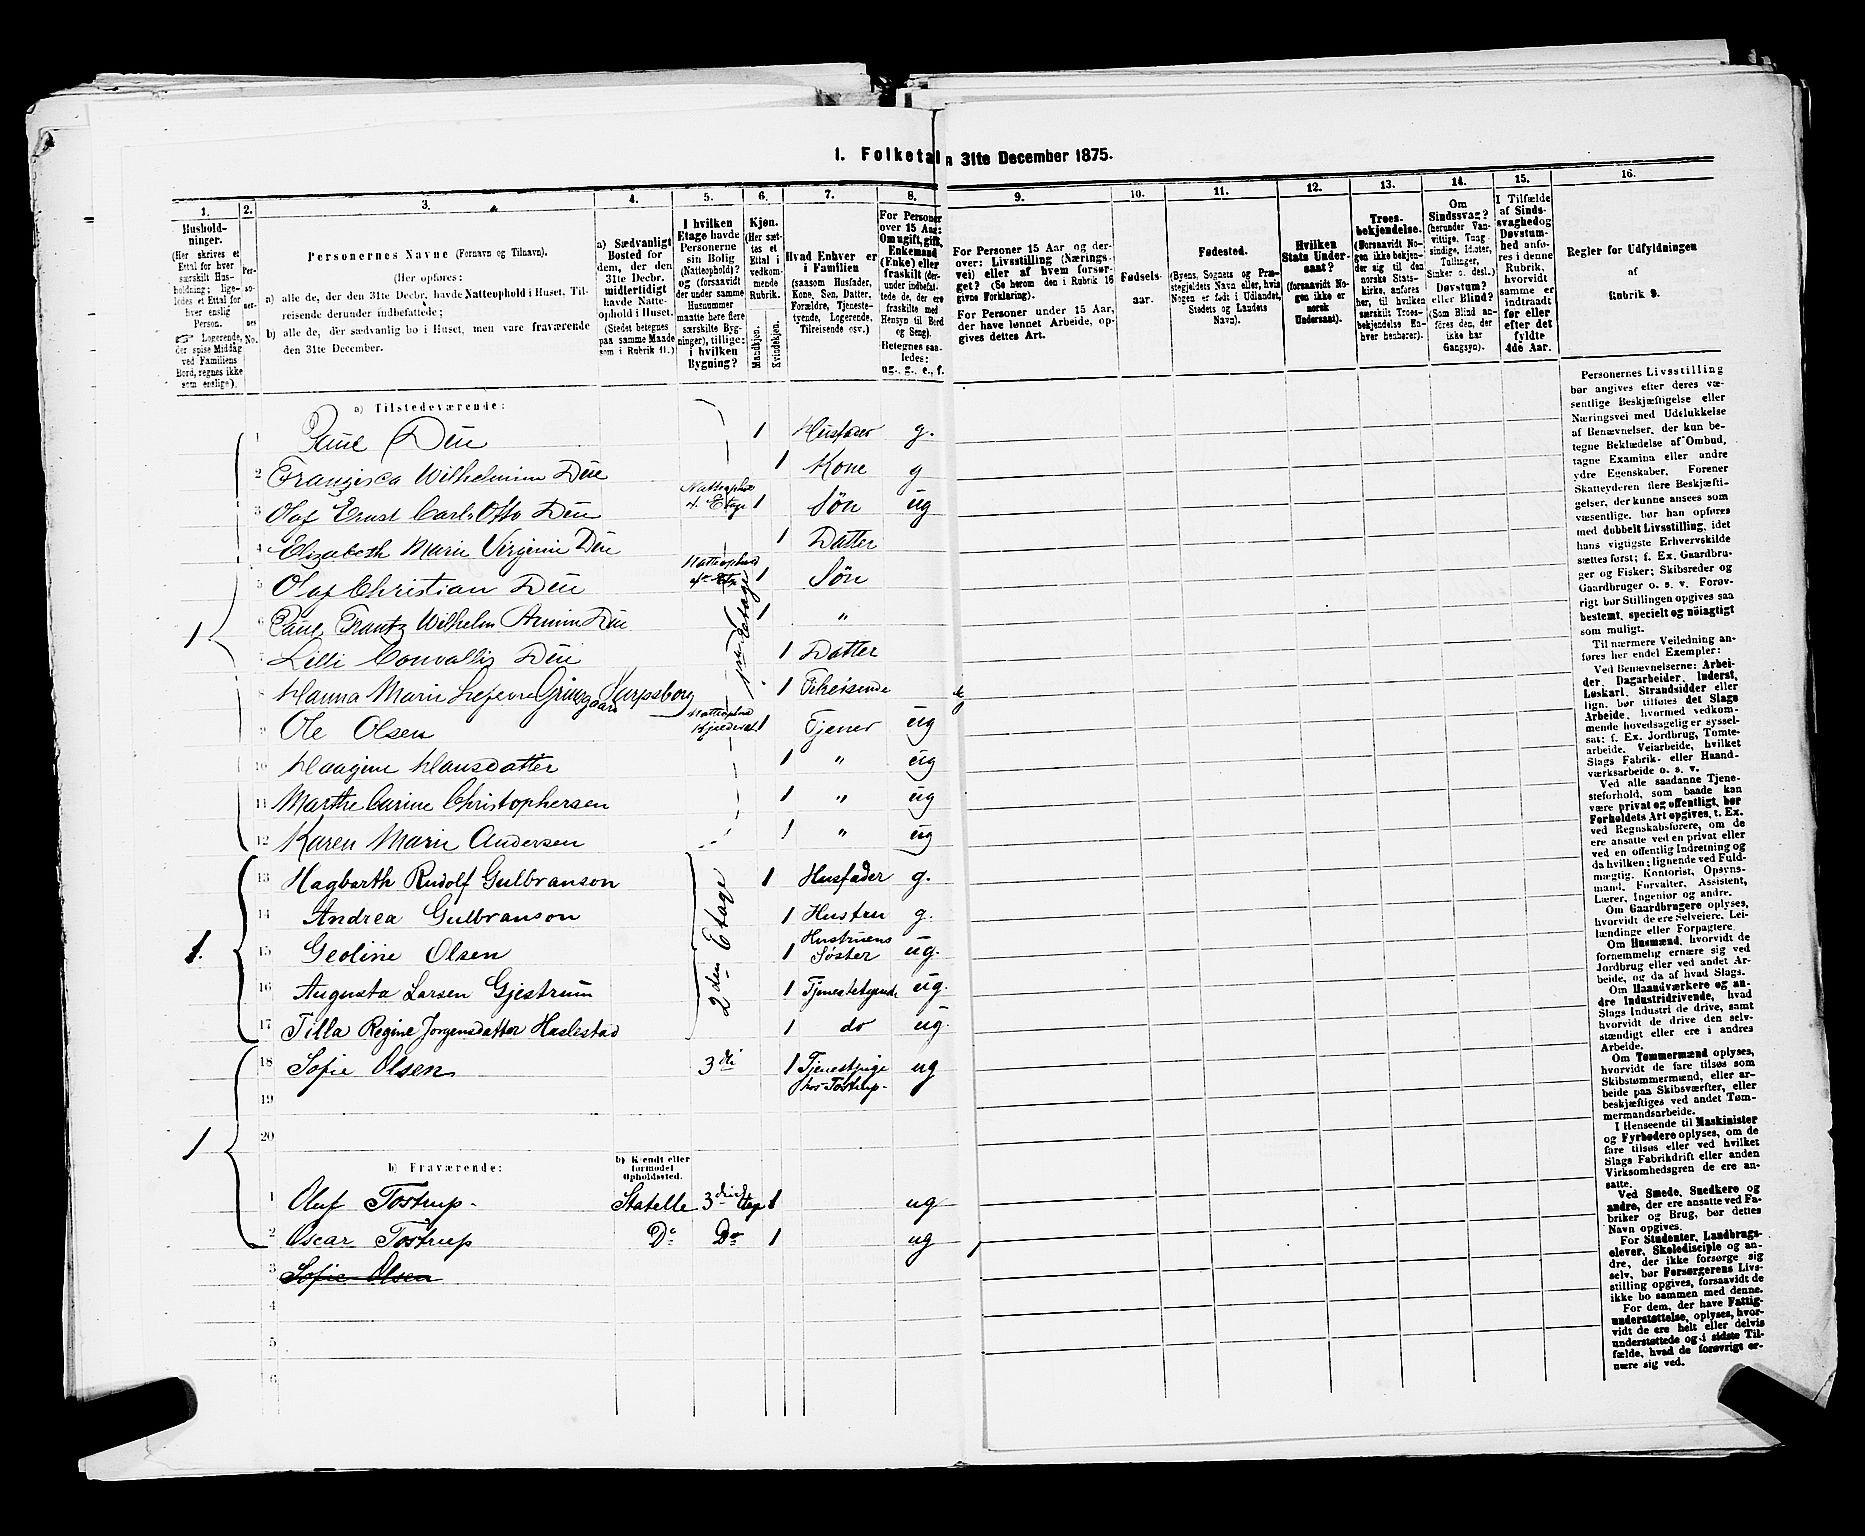 1. Folketal 31te December 1875.
1.
Hushold-
ninger.
(Her skrives et
Ettal for hver
særskilt Hus-
holdning; lige-
ledes et Ettal for
hver enslig
Person.
Logerende,
der spise Middag
ved Familiens
Bord, regnes ikke
som enslige).
2.
Per-
so-
ner-
nes
No.
3.
Personernes Navne (Fornavn og Tilnavn).
(Her opføres:
a) alle de, der den 31te Decbr. havde Natteophold i Huset, Til-
reisende derunder indbefattede;
b) alle de, der sædvanlig bo i Huset, men vare fraværende
den 31te December.
4.
a) Sædvanligt
Bosted for
dem, der den
31te Decbr.
midlertidigt
havde Natte-
ophold i Huset.
(Stedet betegnes
paa samme Maade
som i Rubrik 11.)
5.
I hvilken
Etage havde
Personerne
sin Bolig
(Natteophold)?
og (forsaavidt
der under samme
Husnummer
maatte høre flere
særskilte Byg-
ninger), tillige:
i hvilken
Bygning?
6.
Kjøn.
(Her sæt-
tes et
Ettal i
vedkom-
mende
Rubrik.
Mandkjøn.
Kvindekjøn.
7.
Hvad Enhver er
i Familien
(saasom Husfader,
Kone, Søn, Datter,
Forældre, Tjeneste-
tyende, Logerende,
Tilreisende osv.)
8.
For Personer
over 15 Aar:
Om ugift, gift,
Enkemand
(Enke) eller
fraskilt (der-
under indbefat-
tede de, der ere
fraskilte med
Hensyn til Bord
og Seng).
Betegnes saa-
ledes:
ug., g., e., f.
9.
For Personer 15 Aar og der-
over: Livsstilling (Nærings-
vei) eller af hvem forsør-
get? (Se herom den i Rubrik 16
givne Forklaring).
For Personer under 15 Aar,
der have lønnet Arbeide, op-
gives dettes Art.
10.
Fødsels-
aar.
11.
Fødested.
(Byens, Sognets og Præ-
stegjeldets Navn eller, hvis
Nogen er født i Udlandet,
Stedets og Landets
Navn).
12.
Hvilken
Stats Under-
saat?
(forsaavidt No-
gen ikke er
norsk
Undersaat).
13.
Troes-
bekjendelse.
(Forsaavidt No-
gen ikke bekjen-
der sig til den
norske Stats-
kirke, anføres
her, til hvilken
særskilt Troes-
bekjendelse En-
hver henhører).
14.
Om
Sindssvag?
(herunder Van-
vittige, Tung-
sindige, Idioter,
Tullinger,
Sinker o. desl.)
Døvstum?
eller Blind?
(Som Blind an-
føres den, der
ikke har
Gangsyn).
15.
I Tilfælde
af Sinds-
svaghed og
Døvstum-
hed anfø-
res i denne
Rubrik,
hvorvidt
samme er
indtraadt
før eller
efter det
fyldte
4de Aar.
16.
Regler for Udfyldningen
af
Rubrik 9.
a) Tilstedeværende:
1 Paul Due 1 Husfader g.
2 Franzisca Wilhelmine Due 1 Kone g
3 Olaf Ernst Carl Otto Due Natteophold 4. Etage 1 Søn ug
4 Elizabeth Marie Virginie Due 1 Datter
5 Olaf Christian Due Natteophold 4de Etg 1 Søn
6 Paul Frantz Wilhelm Armin Due 1 "
7 Lilli Convallis Due 1 Datter
8 Hanna Marie Lefevre Grimsgaard Sarpsborg 1 Tilreisende ug
9 Ole Olsen Natteophold 1 Tjener ug
10 Haagine Hansdatter 1 " ug
11 Marthe Carine Christophersen 1 " ug
12 Karen Marie Andersen 1 " ug
1
13 Hagbarth Rudolf Gulbranson 1 Husfader g.
14 Andrea Gulbranson 1 Hustru g.
15 Geoline Olsen 1 Hustruens Søster ug.
16 Augusta Larsen Gjestrum 1 Tjenestetyende ug.
17 Tilla Regine Jorgensdatter Haslestad 1 do ug.
1.
2den Etage
18 Sofie Olsen 3die 1 Tjenestpige hos Tostrup- ug
19
20
1
b) Fraværende:
b) Kjendt eller
formodet
Opholdssted.
1 Oluf Tostrup- Statelle 3die Etage 1 ug
2 Oscar Tostrup Do Do 1 ug
3 Sofie Olsen
4
5
6
Personernes Livsstilling
bør angives efter deres væ-
sentlige Beskjæftigelse eller
Næringsvei med Udelukkelse
af Benævnelser, der kun be-
tegne Beklædelse af Ombud,
tagne Examina eller andre
ydre Egenskaber. Forener
Skatteyderen flere Beskjæfti-
gelser, der kunne ansees som
væsentlige, bør han opføres
med dobbelt Livsstilling, idet
hans vigtigste Erhvervskilde
sættes først; f. Ex. Gaardbru-
ger og Fisker; Skibsreder og
Gaardbruger o. s. v. Forøv-
rigt bør Stillingen opgives saa
bestemt, specielt og nøiagtigt
som muligt.
Til nærmere Veiledning an-
føres her endel Exempler:
Ved Benævnelserne: Arbei-
der, Dagarbeider, Inderst,
Løskarl, Strandsidder eller
lign. bør tilføies det Slags
Arbeide, hvormed vedkom-
mende hovedsagelig er syssel-
sat; f. Ex. Jordbrug, Tomte-
arbeide, Veiarbeide, hvilket
Slags Fabrik- eller Haand-
værksarbeide o. s. v.
Ved alle saadanne Tjene-
steforhold, som baade kan
være privat og offentligt, bør
Forholdets Art opgives, t. Ex.
ved Regnskabsførere, om de
ere ansatte ved en privat eller
ved en offentlig Indretning og
da hvilken; lignende ved Fuld-
mægtig, Kontorist, Opsyns-
mand, Forvalter, Assistent,
Lærer, Ingeniør og andre.
Om Gaardbrugere oplyses,
hvorvidt de ere Selveiere, Lei-
lændinge eller Forpagtere.
Om Husmænd, hvorvidt de
fornemmelig ernære sig ved
Jordbrug eller ved andet Ar-
beide, og da af hvad Slags.
Om Haandværkere og an-
dre Industridrivende, hvad
Slags Industri de drive, samt
hvorvidt de drive den selv-
stændigt eller ere i andres
Arbeide.
Om Tømmermænd oplyses,
hvorvidt de fare tilsøs som
Skibstømmermænd, eller ar-
beide paa Skibsværfter, eller
beskjæftiges ved andet Tøm-
mermandsarbeide.
I Henseende til Maskinister
og Fyrbødere oplyses, om de
fare tilsøs eller ved hvilket
Slags Fabrikdrift eller anden
Virksomhedsgren de ere an-
satte.
Ved Smede, Snedkere og
andre, der ere ansatte ved Fa-
briker og Brug, bør dettes
Navn opgives.
For Studenter, Landbrugs-
elever, Skoledisciple og an-
dre, der ikke forsørge sig
selv, bør Forsørgerens Livs-
stilling opgives, forsaavidt de
ikke bo sammen med denne.
For dem, der have Fattig-
understøttelse, oplyses, hvor-
vidt de ere helt eller delvis
understøttede og i sidste Til-
fælde, hvad de forøvrigt er-
nære sig ved.